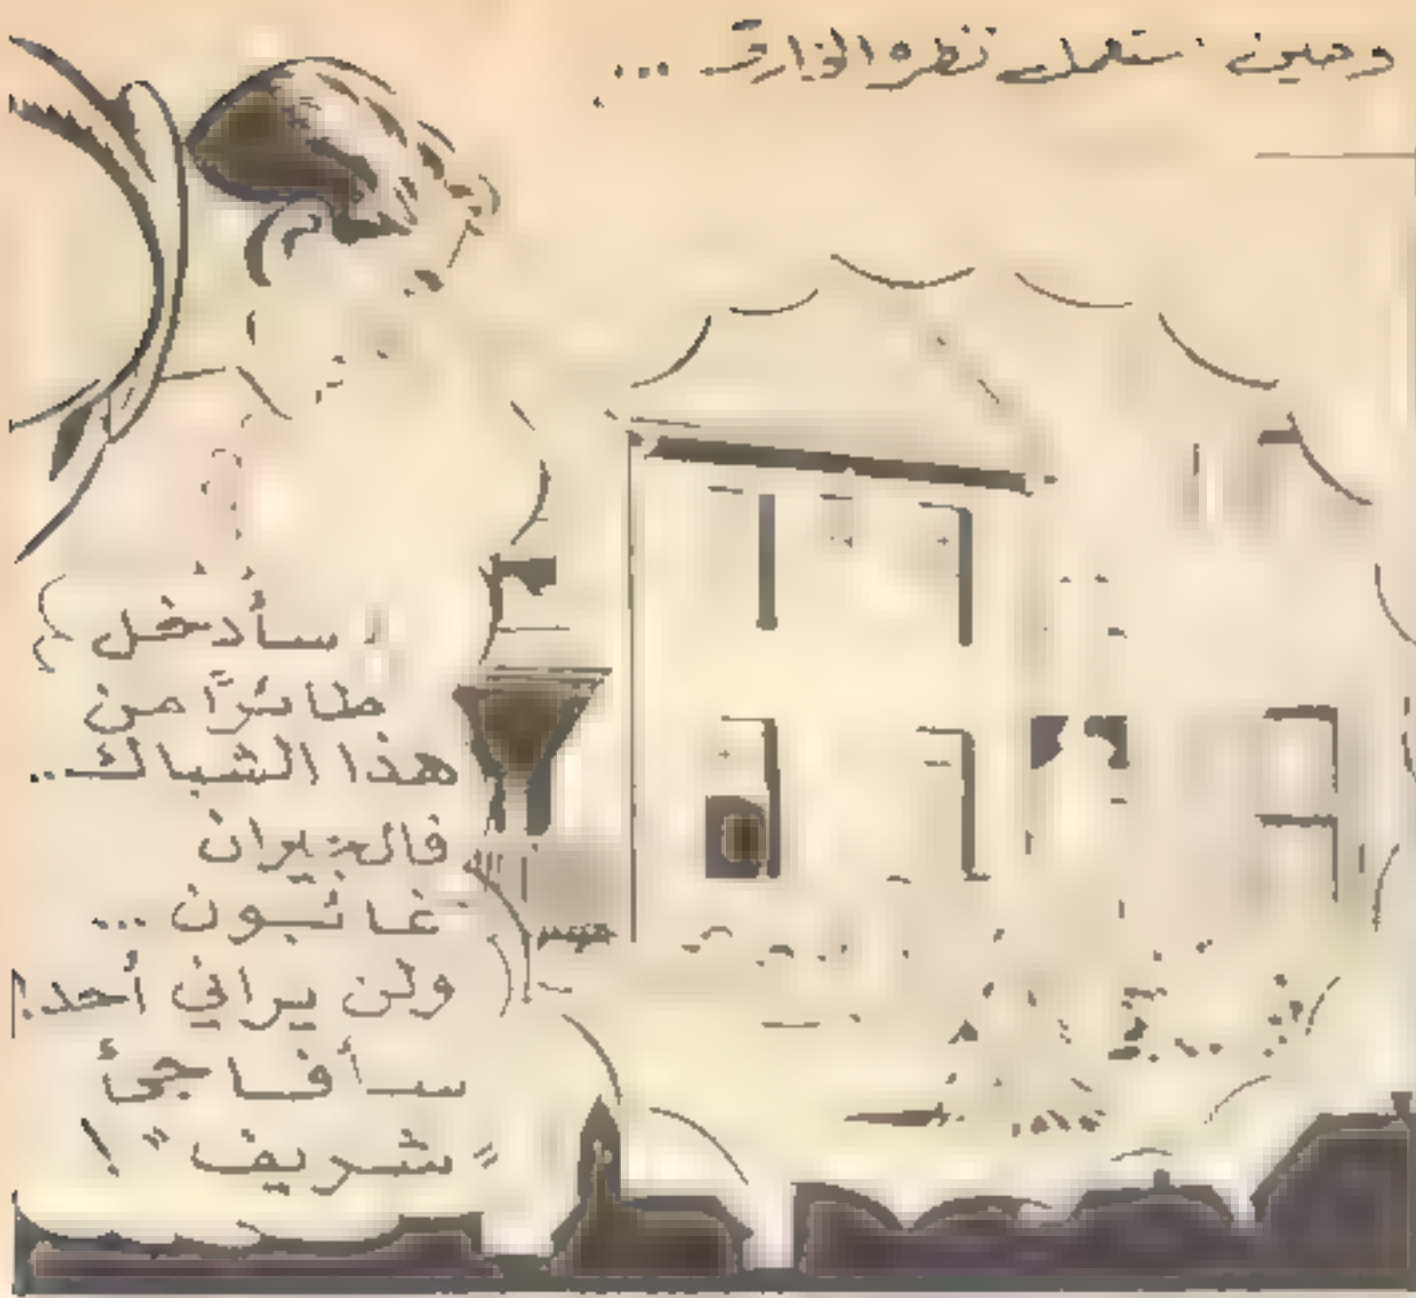 وحين استعمل نظره الخارق ...
سأدخل
طائرًا من
هذا الشباك ..
فالجيران
غائبون ...
ولن يراني أحد !
سأفاجئ
" شريف " !